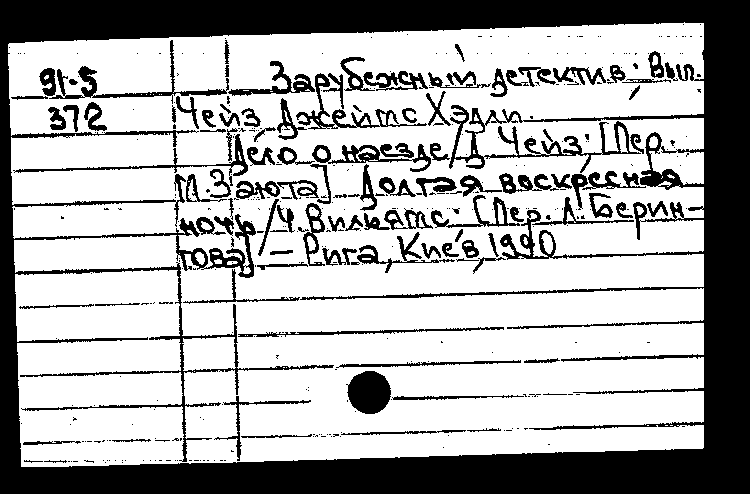 91-5 Зарубежный детектив: Вып.
372 Чейз Джеймс Хэдли.
Дело о наезде/Д Чейз; [Пер.
М. Заюта] Долгая воскресная
ночь /Ч. Вильямс; [Пер. Л. Берин-
това]. – Рига, Киев, 1990